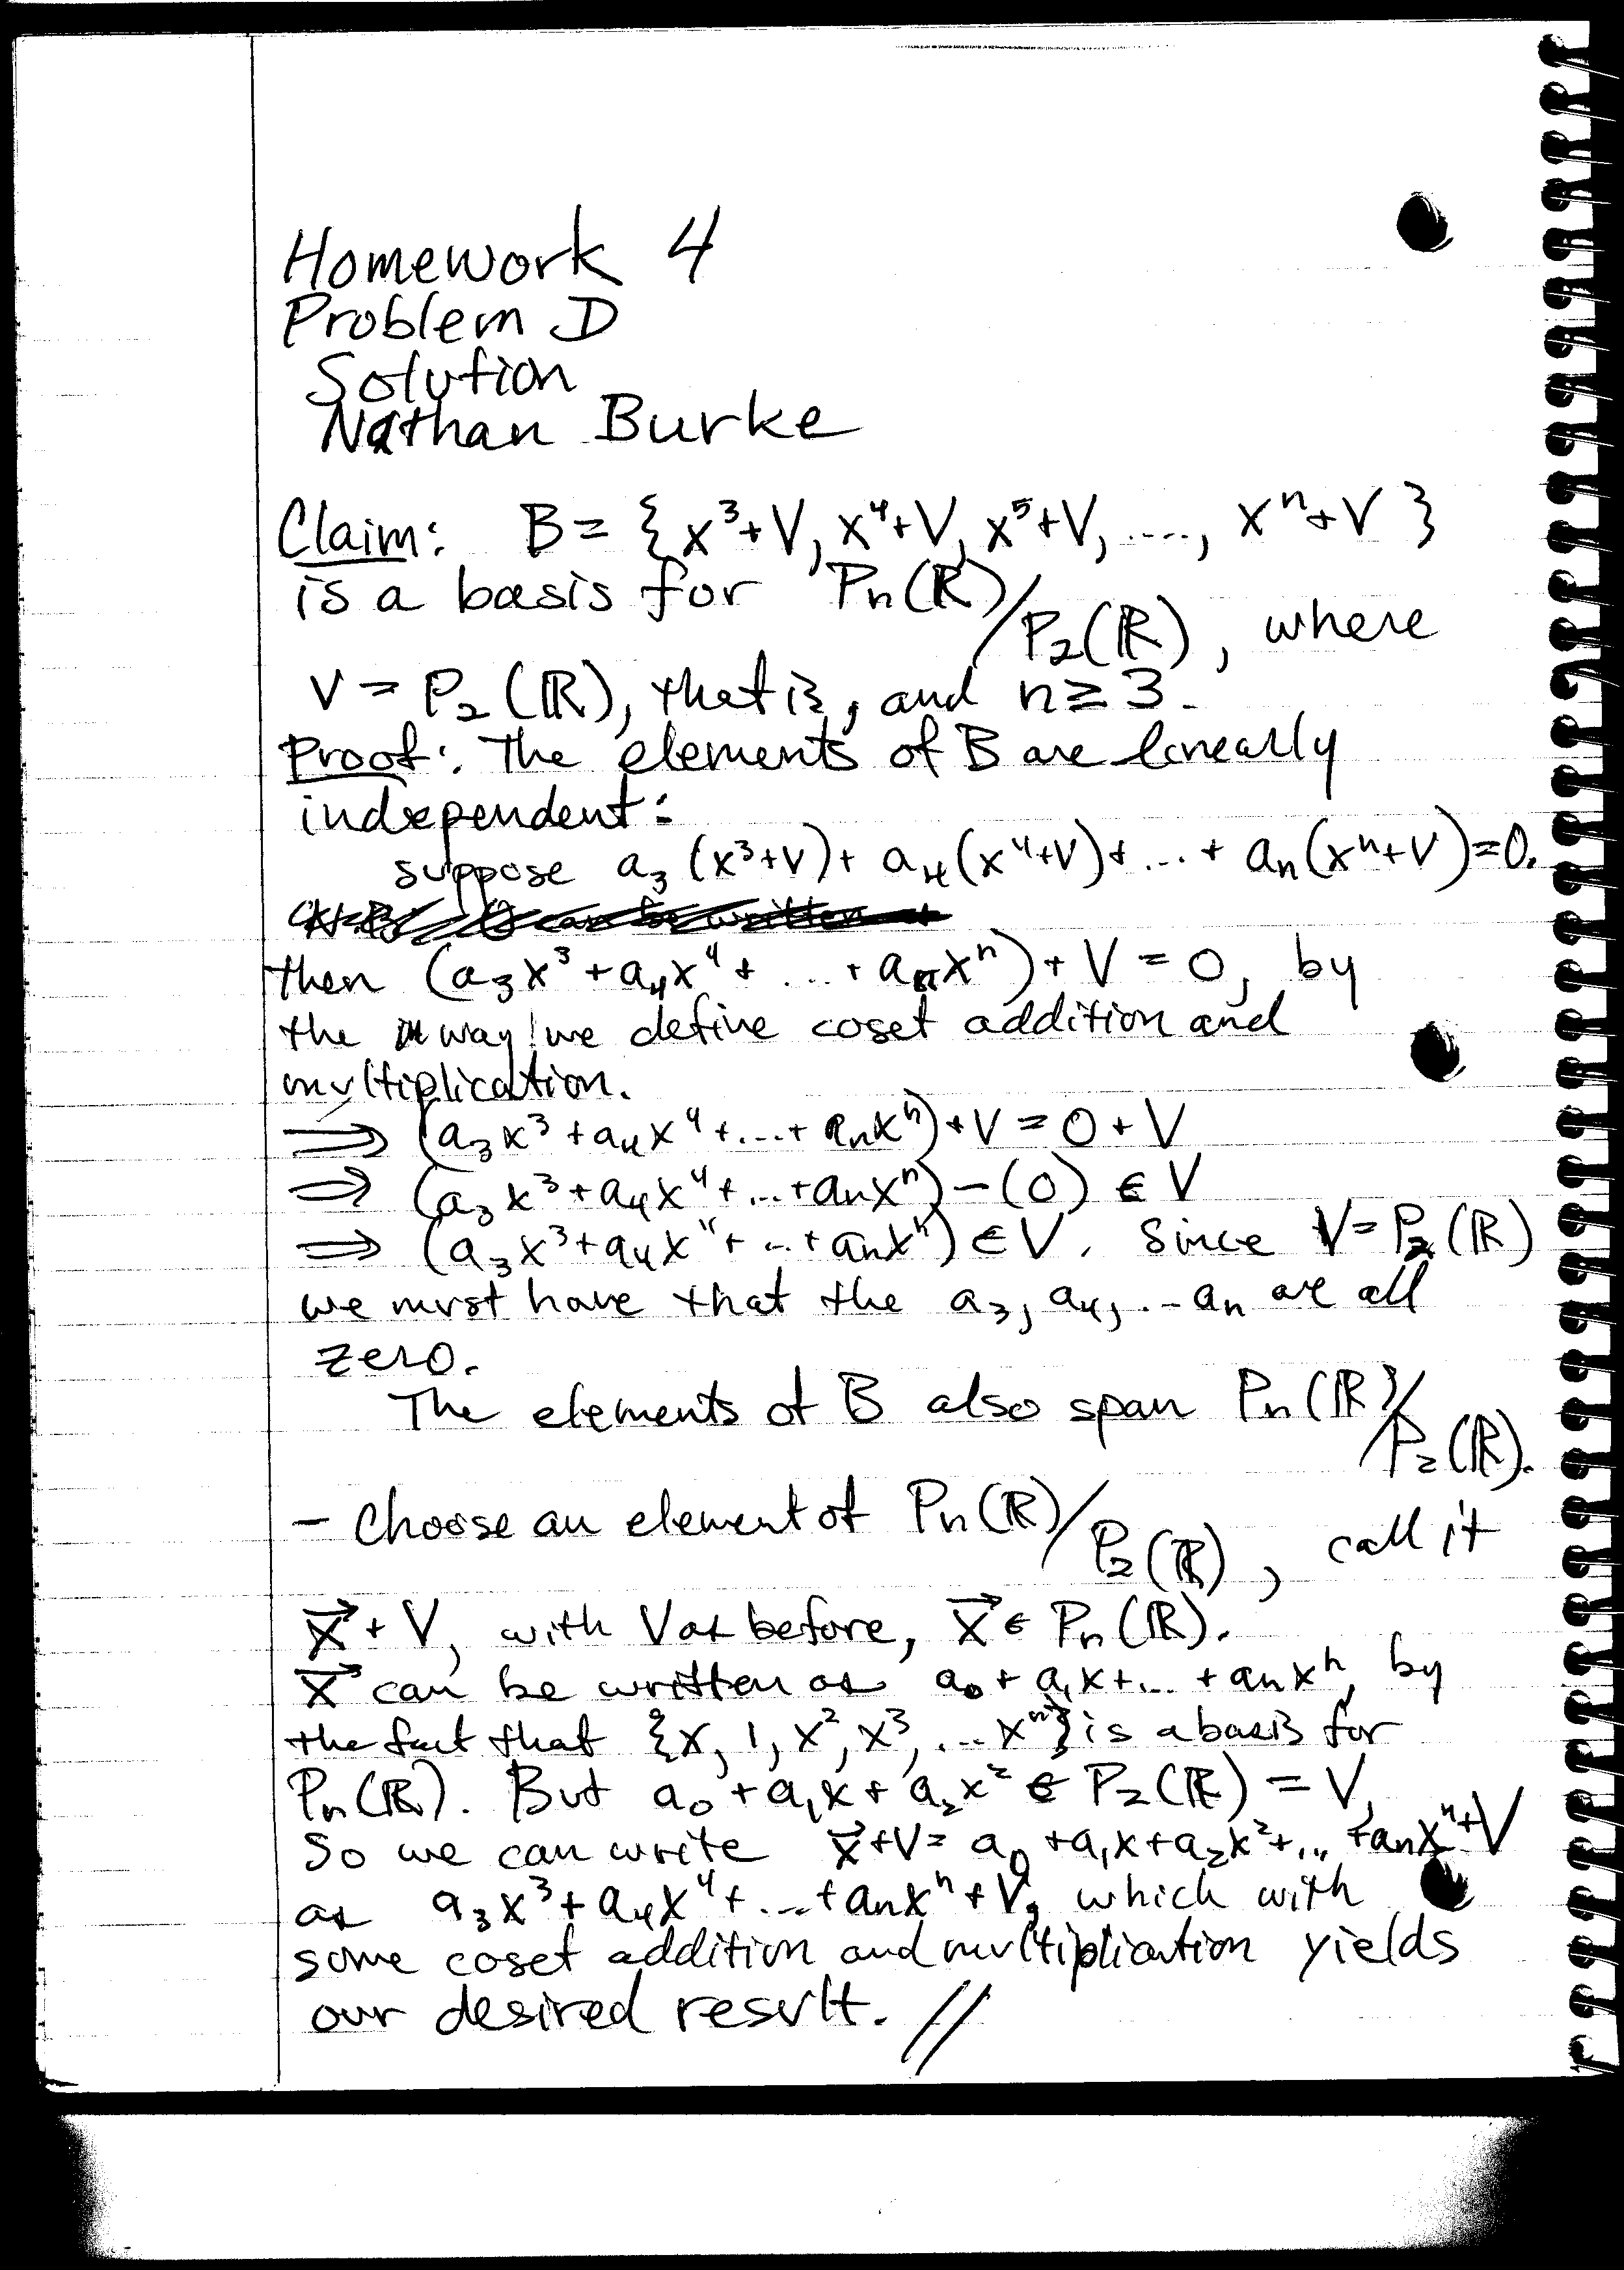 Homework 4
Problem D
Solution
Nathan Burke
Claim: B = { x³+V, x⁴+V, x⁵+V, ...., xⁿ+V }
is a basis for Pn(ℝ)/P₂(ℝ), where
V = P₂(ℝ), that is, and n ≥ 3.
Proof: The elements of B are linearly
independent:
suppose a₃(x³+V) + a₄(x⁴+V) + ... + aₙ(xⁿ+V) = 0.
then (a₃x³ + a₄x⁴ + ... + aₙxⁿ) + V = 0, by
the way we define coset addition and
multiplication.
⟹ (a₃x³ + a₄x⁴ + ... + aₙxⁿ) + V = 0 + V
⟹ (a₃x³ + a₄x⁴ + ... + aₙxⁿ) − (0) ∈ V
⟹ (a₃x³ + a₄x⁴ + ... + aₙxⁿ) ∈ V. Since V = P₂(ℝ)
we must have that the a₃, a₄, ... aₙ are all
zero.
The elements of B also span Pn(ℝ)/P₂(ℝ).
- Choose an element of Pn(ℝ)/P₂(ℝ), call it
x⃗ + V, with V as before, x⃗ ∈ Pn(ℝ).
x⃗ can be written as a₀ + a₁x + ... + aₙxⁿ, by
the fact that {x, 1, x², x³, ... xⁿ} is a basis for
Pn(ℝ). But a₀ + a₁x + a₂x² ∈ P₂(ℝ) = V,
so we can write x⃗+V = a₀ + a₁x + a₂x² + ... + aₙxⁿ + V
as a₃x³ + a₄x⁴ + ... + aₙxⁿ + V, which with
some coset addition and multiplication yields
our desired result. //